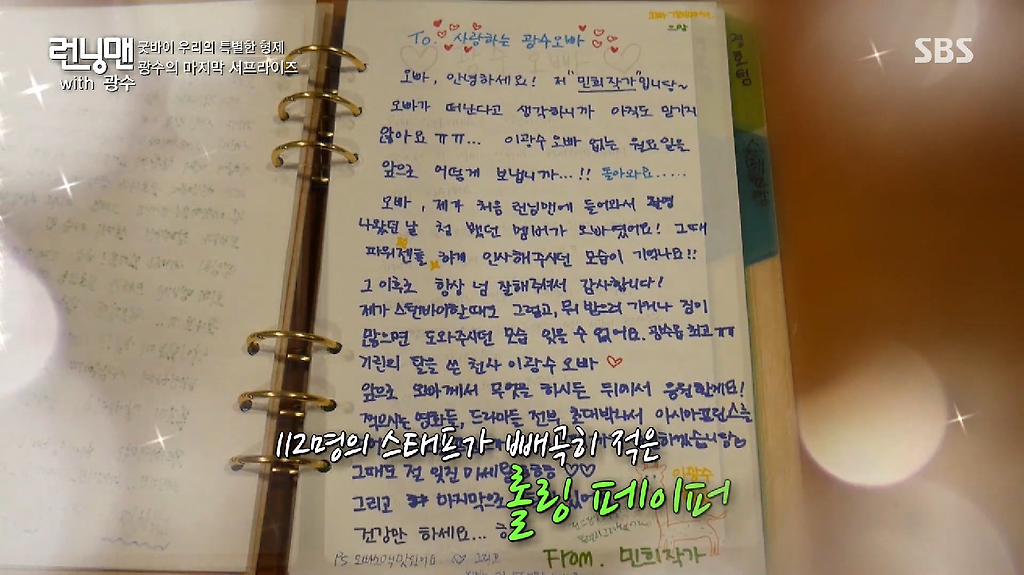 런닝맨
with 광수
굿바이 우리의 특별한 형제
광수의 마지막 서프라이즈
SBS
To. 사랑하는 광수오빠
오빠, 안녕하세요! 저 "민희작가"입니당~
오빠가 떠난다고 생각하니까 아직도 믿기지
않아요 ㅠㅠ... 이광수오빠 없는 월요일을
앞으로 어떻게 보냅니까...!! 돌아와요.....
오빠, 제가 처음 런닝맨에 들어와서 촬영
나왔던 날 첨 뵀던 멤버가 오빠였어요! 그때
파워젠틀 하게 인사해주시던 모습이 기억나요!!
그 이후로 항상 넘 잘해주셔서 감사합니다!
제가 스탠바이할때도 그렇고, 뭐 받으러 가거나 짐이
많으면 도와주시던 모습 잊을 수 없어요. 광수옵 최고ㅠㅠ
기린의 탈을 쓴 천사 이광수 오빠
앞으로 오빠께서 무엇을 하시든 뒤에서 응원할게요!
찍으시는 영화들, 드라마들 전부 초대박나서 아시아프린스는
하겠습니당
그때도 절 잊진 마세요
그리고 마지막으로
건강만 하세요...
From. 민희작가
112명의 스태프가 빼곡히 적은
롤링 페이퍼